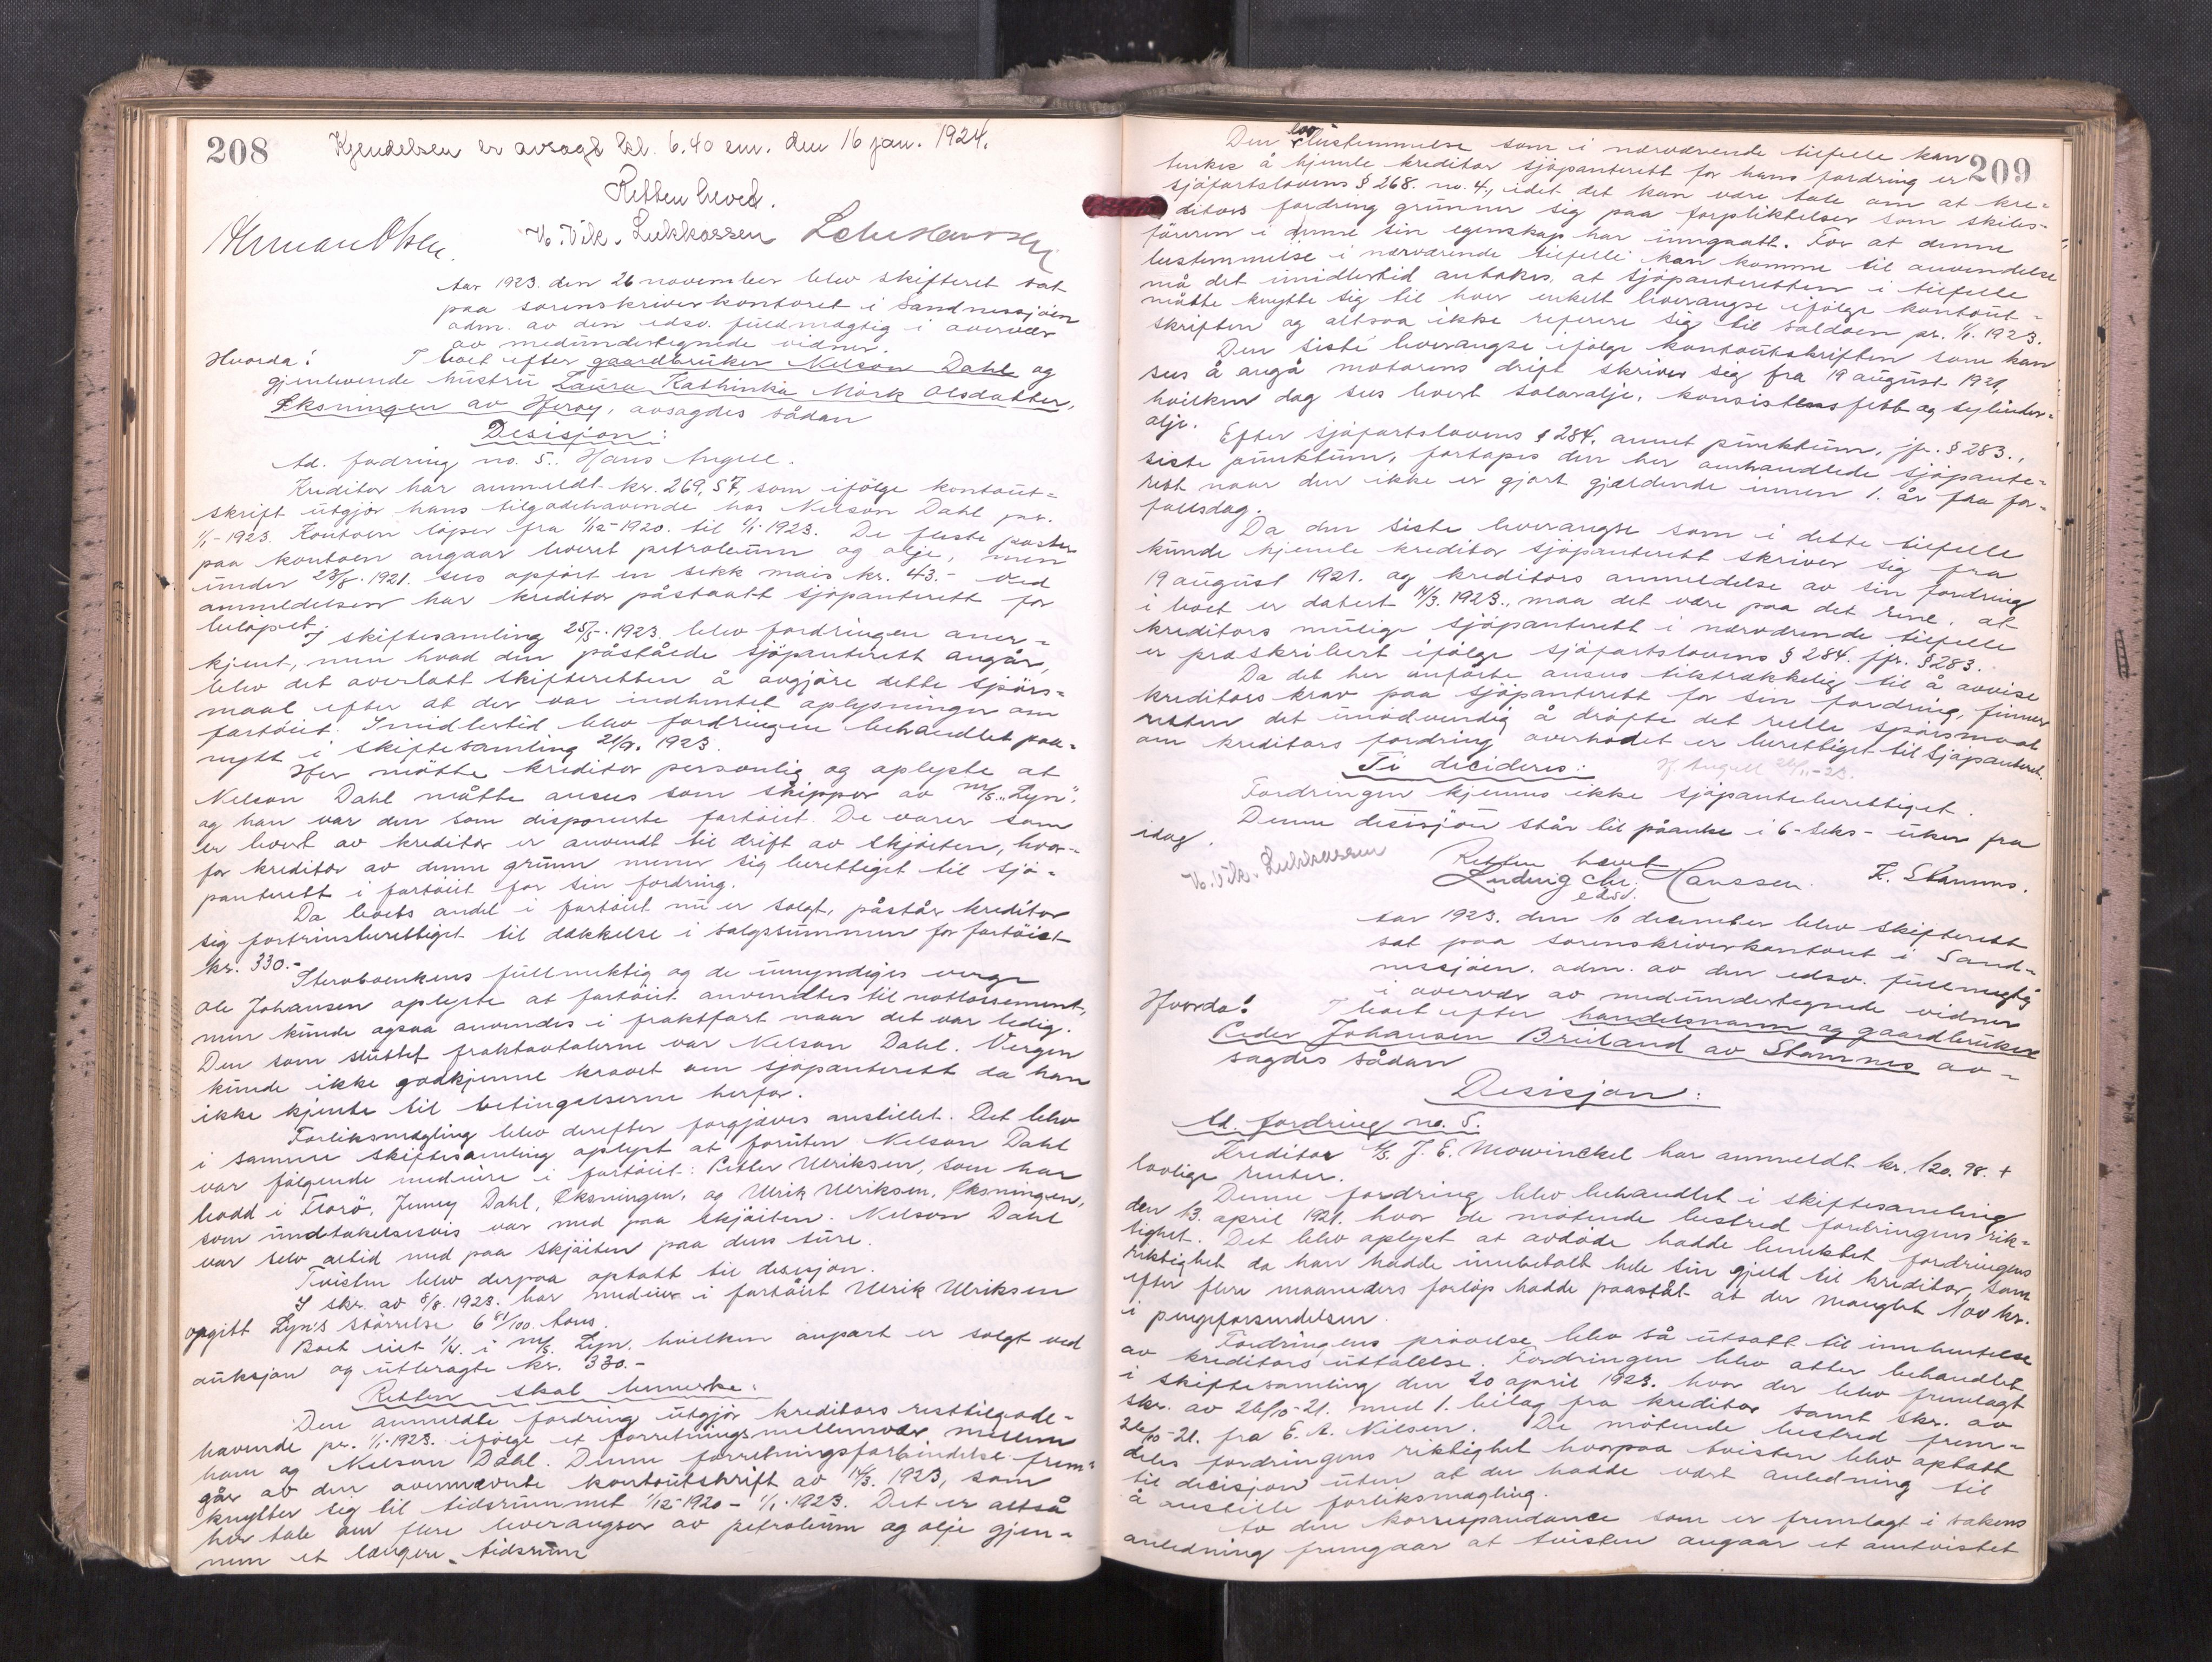 208
Kjendelsen er avsagt kl. 6.40 em. den 16 jan. 1924.
Retten hevet.
Herman Olsen. V. Vik-Lukkassen
Aar 1923. den 26 november blev skifteret sat
paa sorenskriverkontoret i Sandnessjøen
adm. av den edsv. fuldmægtig i overvær
av medundertegnede vidner.
Hvorda: I boet efter gaardbruker Nelson Dahl og
gjenlevende hustru Laura Kathinka Mørk Olsdatter,
Øksningen av Herøy, avsagdes sådan
Desisjon:
Ad. fordring no. 5. Hans Angell.
Kreditor har anmeldt kr. 269,57, som ifölge kontout-
skrift utgjör hans tilgodehavende hos Nelson Dahl pr.
1/1-1923. Kontoen löper fra 1/12-1920. til 1/1-1923. De fleste poster
paa kontoen angaar levert petroleum og olje, men
under 23/8. 1921. sees opfört en sekk mais kr. 43.- Ved
anmeldelsen har kreditor påstaatt sjöpanterett for
belöpet.
I skiftesamling 25/5. 1923. blev fordringen aner-
kjent, men hvad den påståede sjöpanterett angår,
blev det overlatt skifteretten å avgjöre dette spörs-
maal efter at der var indhentet oplysninger om
fartöiet. Imidlertid blev fordringen behandlet paa-
nytt i skiftesamling 21/9. 1923.
Her mötte kreditor personlig og oplyste at
Nelson Dahl måtte ansees som skipper av m/s. "Lyn",
og han var den som disponerte fartöiet. De varer som
er levert av kreditor er anvendt til drift av skjöiten, hvor-
for kreditor av denne grunn mener sig berettiget til sjö-
panterett i fartöiet for sin fordring.
Da boets andel i fartöiet nu er solgt, påstår kreditor
sig fortrinsberettiget til dækkelse i salgssummen for fartöiet
kr. 330.-
Sterboenkens fullmektig og de umyndiges verge
Ole Johansen oplyste at fartöiet anvendtes til notlossement,
men kunde ogsaa anvendes i fraktfart naar det var ledig.
Den som sluttet fraktavtalerne var Nelson Dahl. Vergen
kunde ikke godkjenne kravet om sjöpanterett da han
ikke kjente til betingelserne herfor.
Forliksmegling blev derefter forgjæves anstillet. Det blev
i samme skiftesamling oplyst at foruten Nelson Dahl
var følgende medeiere i fartöiet: Petter Ulriksen, som har
bodd i Florö, Jenny Dahl, Öksningen, og Ulrik Ulriksen, Öksningen,
som undtakelsesvis var med paa skjöiten. Nelson Dahl
var selv altid med paa skjöiten paa dens ture.
Tvisten blev derpaa optatt til desisjon.
I skr. av 8/8. 1923. har medeier i fartöiet Ulrik Ulriksen
opgitt Lyn's störrelse 6 81/100 tons.
Boet eiet 1/4. i m/s. Lyn, hvilken anpart er solgt ved
auksjon og utbragte kr. 330.-
Retten skal bemerke:
Den anmeldte fordring utgjör kreditors resttilgode-
havende pr. 1/1-1923. ifölge et forretningsmellemvær mellem
ham og Nelson Dahl. Denne forretningsforbindelse frem-
går av den ovennævnte kontoutskrift av 14/3. 1923, som
knytter sig til tidsrummet 1/12-1920 - 1/1-1923. Det er altså
her tale om flere leveranser av petroleum og olje gjen-
nem et længere tidsrum
209
Den lovbestemmelse som i nærværende tilfelle kan
tenkes å hjemle kreditor sjöpanterett for hans fordring er
sjöfartslovens § 268. no. 4., idet det kan være tale om at kre-
ditors fordring grunner sig paa forpliktelser som skibs-
föreren i denne sin egenskap har inngaatt. For at denne
bestemmelse i nærværende tilfelle kan komme til anvendelse
må det imidlertid antakes, at sjöpanteretten i tilfelle
måtte knytte sig til hver enkelt leveranse ifölge kontout-
skriften og altsaa ikke referere sig til saldoen pr. 1/1. 1923.
Den siste leveranse ifölge kontoutskriften som kan
sees å angå motorens drift skriver sig fra 19 august 1921,
hvilken dag sees levert solarolje, konsistensfett og sylinder-
olje.
Efter sjöfartslovens § 284. annet punktum, jfr. § 283.,
siste punktum, fortapes den her omhandlede sjöpante-
rett naar den ikke er gjort gjældende innen 1. år fra for-
fallsdag.
Da den siste leveranse som i dette tilfelle
kunde hjemle kreditor sjöpanterett skriver sig fra
19 august 1921. og kreditors anmeldelse av sin fordring
i boet er datert 14/3. 1923., maa det være paa det rene, at
kreditors mulige sjöpanterett i nærværende tilfelle
er præskribert ifölge sjöfartslovens § 284. jfr. § 283.
Da det her anförte ansees tilstrekkelig til å avvise
kreditors krav paa sjöpanterett for sin fordring, finner
retten det unödvendig å dröfte det reelle spörsmaal
om kreditors fordring overhodet er berettiget til sjöpanterett.
Ti decideres:
H. Angell 26/11-23.
Fordringen kjennes ikke sjöpanteberettiget.
Denne desisjon står til påanke i 6-seks-uker fra
idag.
Retten hævet
V. Vik-Lukkassen Ludvig Chr. Hanssen. K. Stamnes.
edsv.
Aar 1923. den 10 december blev skifterett
sat paa sorenskriverkontoret i Sand-
nessjöen. adm. av den edsv. fullmegtig
i overvær av medundertegnede vidner
Hvorda: I boet efter handelsmann og gaardbruker
Peder Johansen Breiland av Stamnes av-
sagdes sådan
Desisjon:
Ad. fordring no. 5.
Kreditor A/S. J. E. Mowinckel har anmeldt kr. 120.98. +
lovlige renter.
Denne fordring blev behandlet i skiftesamling
den 13. april 1921. hvor de mötende bestred fordringens rik-
tighet. Det blev oplyst at avdöde hadde benektet fordringens
riktighet da han hadde innbetalt hele sin gjeld til kreditor, som
efter flere maaneders forlöp hadde paastått at der manglet 100 kr.
i pengeforsendelsen.
Fordringens prövelse blev så utsatt til innhentelse
av kreditors uttalelse. Fordringen blev atter behandlet
i skiftesamling den 20 april 1923. hvor der blev fremlagt
skr. av 26/10-21. med 1. bilag fra kreditor samt skr. av
26/10-21. fra E. A. Nilsen. De mötende bestred frem-
deles fordringens riktighet hvorpaa tvisten blev optatt
til decisjon uten at der hadde vært anledning til
å anstille forliksmegling.
Av den korrespondance som er fremlagt i sakens
anledning fremgaar at tvisten angaar et omtvistet